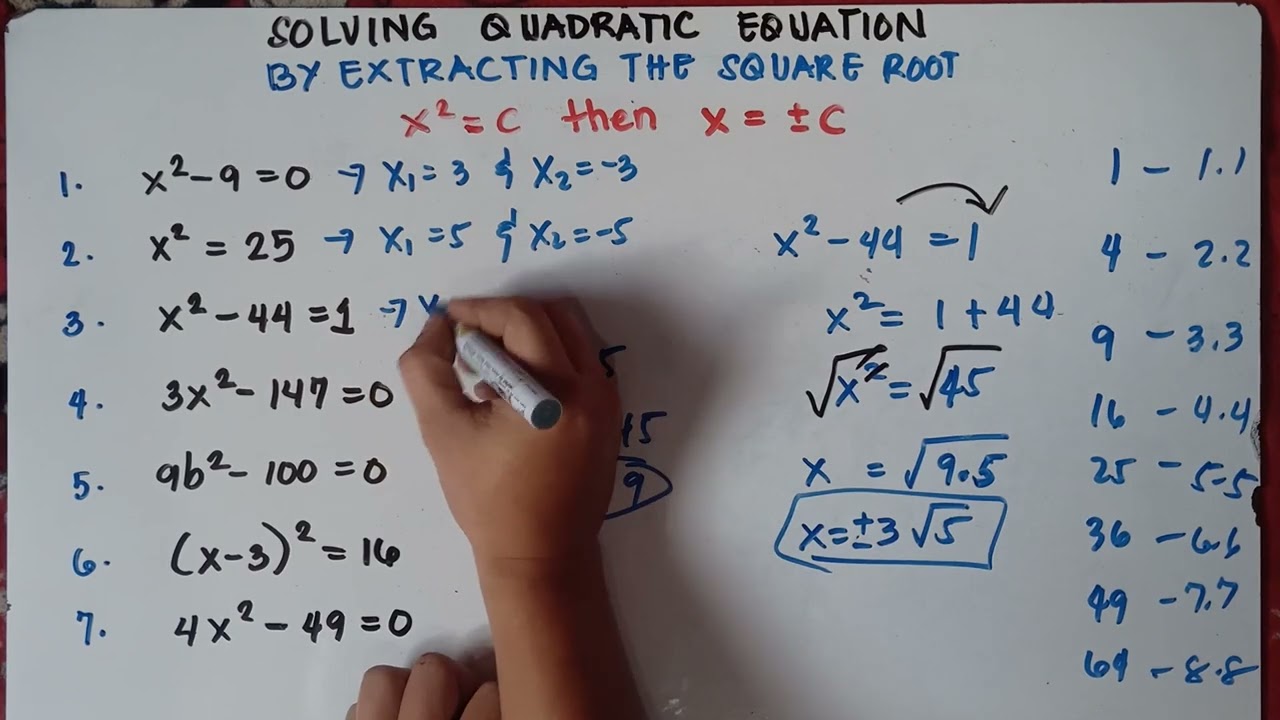 SOLVING QUADRATIC EQUATION
BY EXTRACTING THE SQUARE ROOT
x² = c then x = ±c
1. x² - 9 = 0 → x₁ = 3 & x₂ = -3
2. x² = 25 → x₁ = 5 & x₂ = -5
3. x² - 44 = 1 → x
4. 3x² - 147 = 0
5. 9b² - 100 = 0
6. (x - 3)² = 16
7. 4x² - 49 = 0
5
45
9
x² - 44 = 1
x² = 1 + 44
√x² = √45
x = √9.5
x = ±3√5
1 - 1.1
4 - 2.2
9 - 3.3
16 - 4.4
25 - 5.5
36 - 6.6
49 - 7.7
64 - 8.8